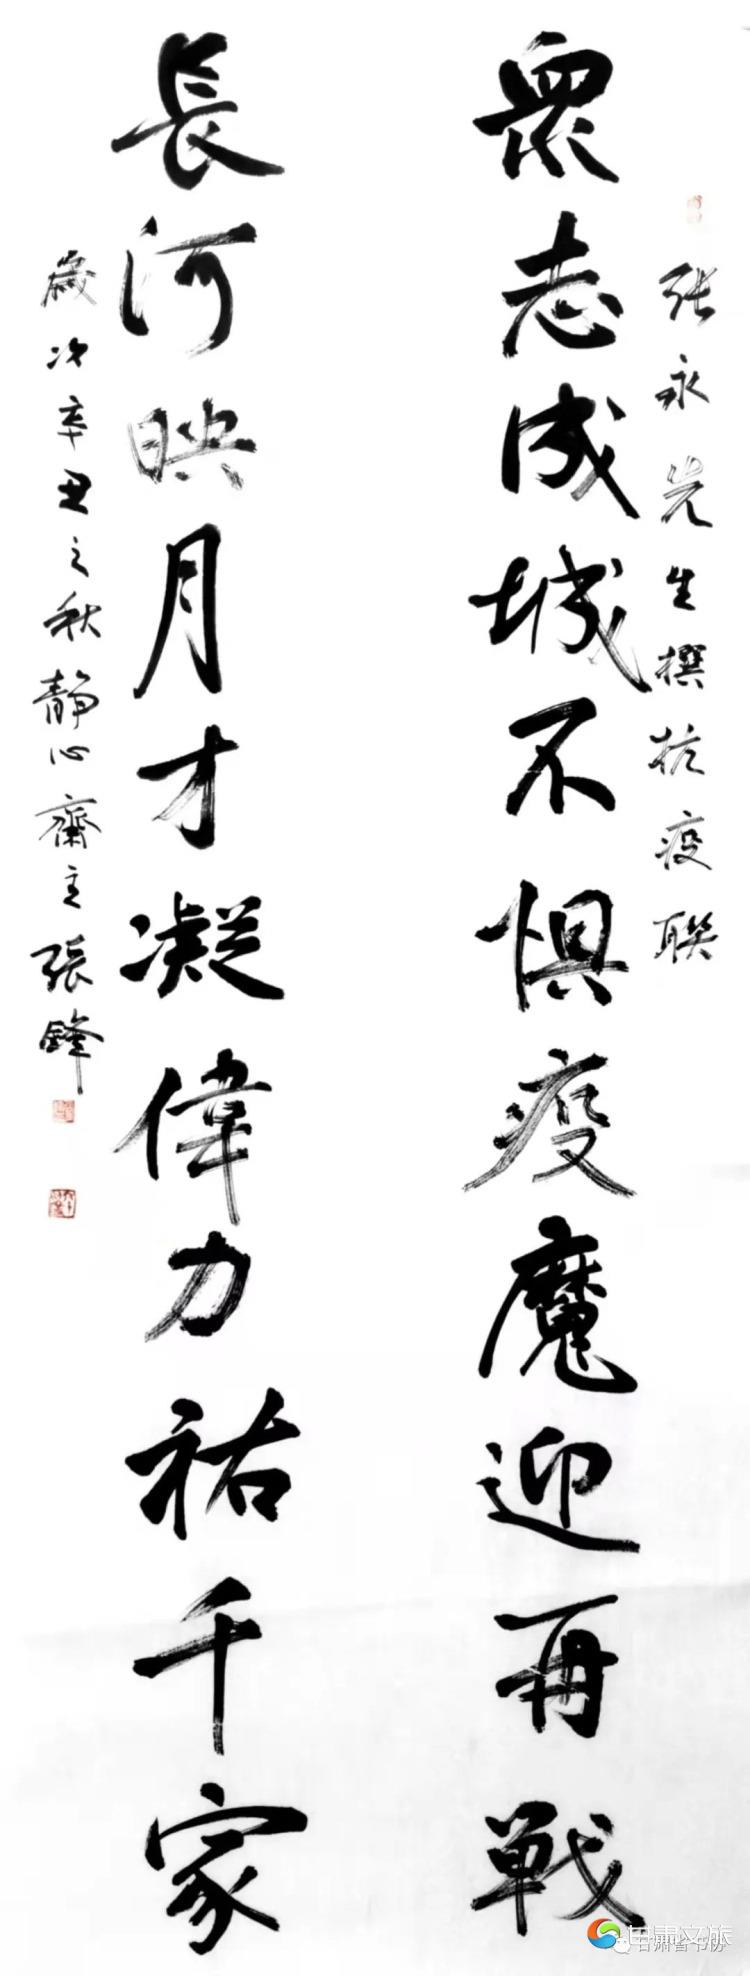 张永先生撰抗疫联
眾志成城不惧疫魔迎再戦
長河映月才凝偉力祐千家
歲次辛丑之秋静心齋主張鋒
甘肃文旅
甘肃省书协